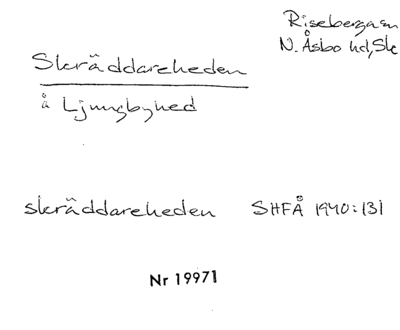 Riseberga sn
N. Åsbo hd, Sk
Skräddareheden
å Ljungbyhed
skräddareheden SHFÅ 1940:131
Nr 19971